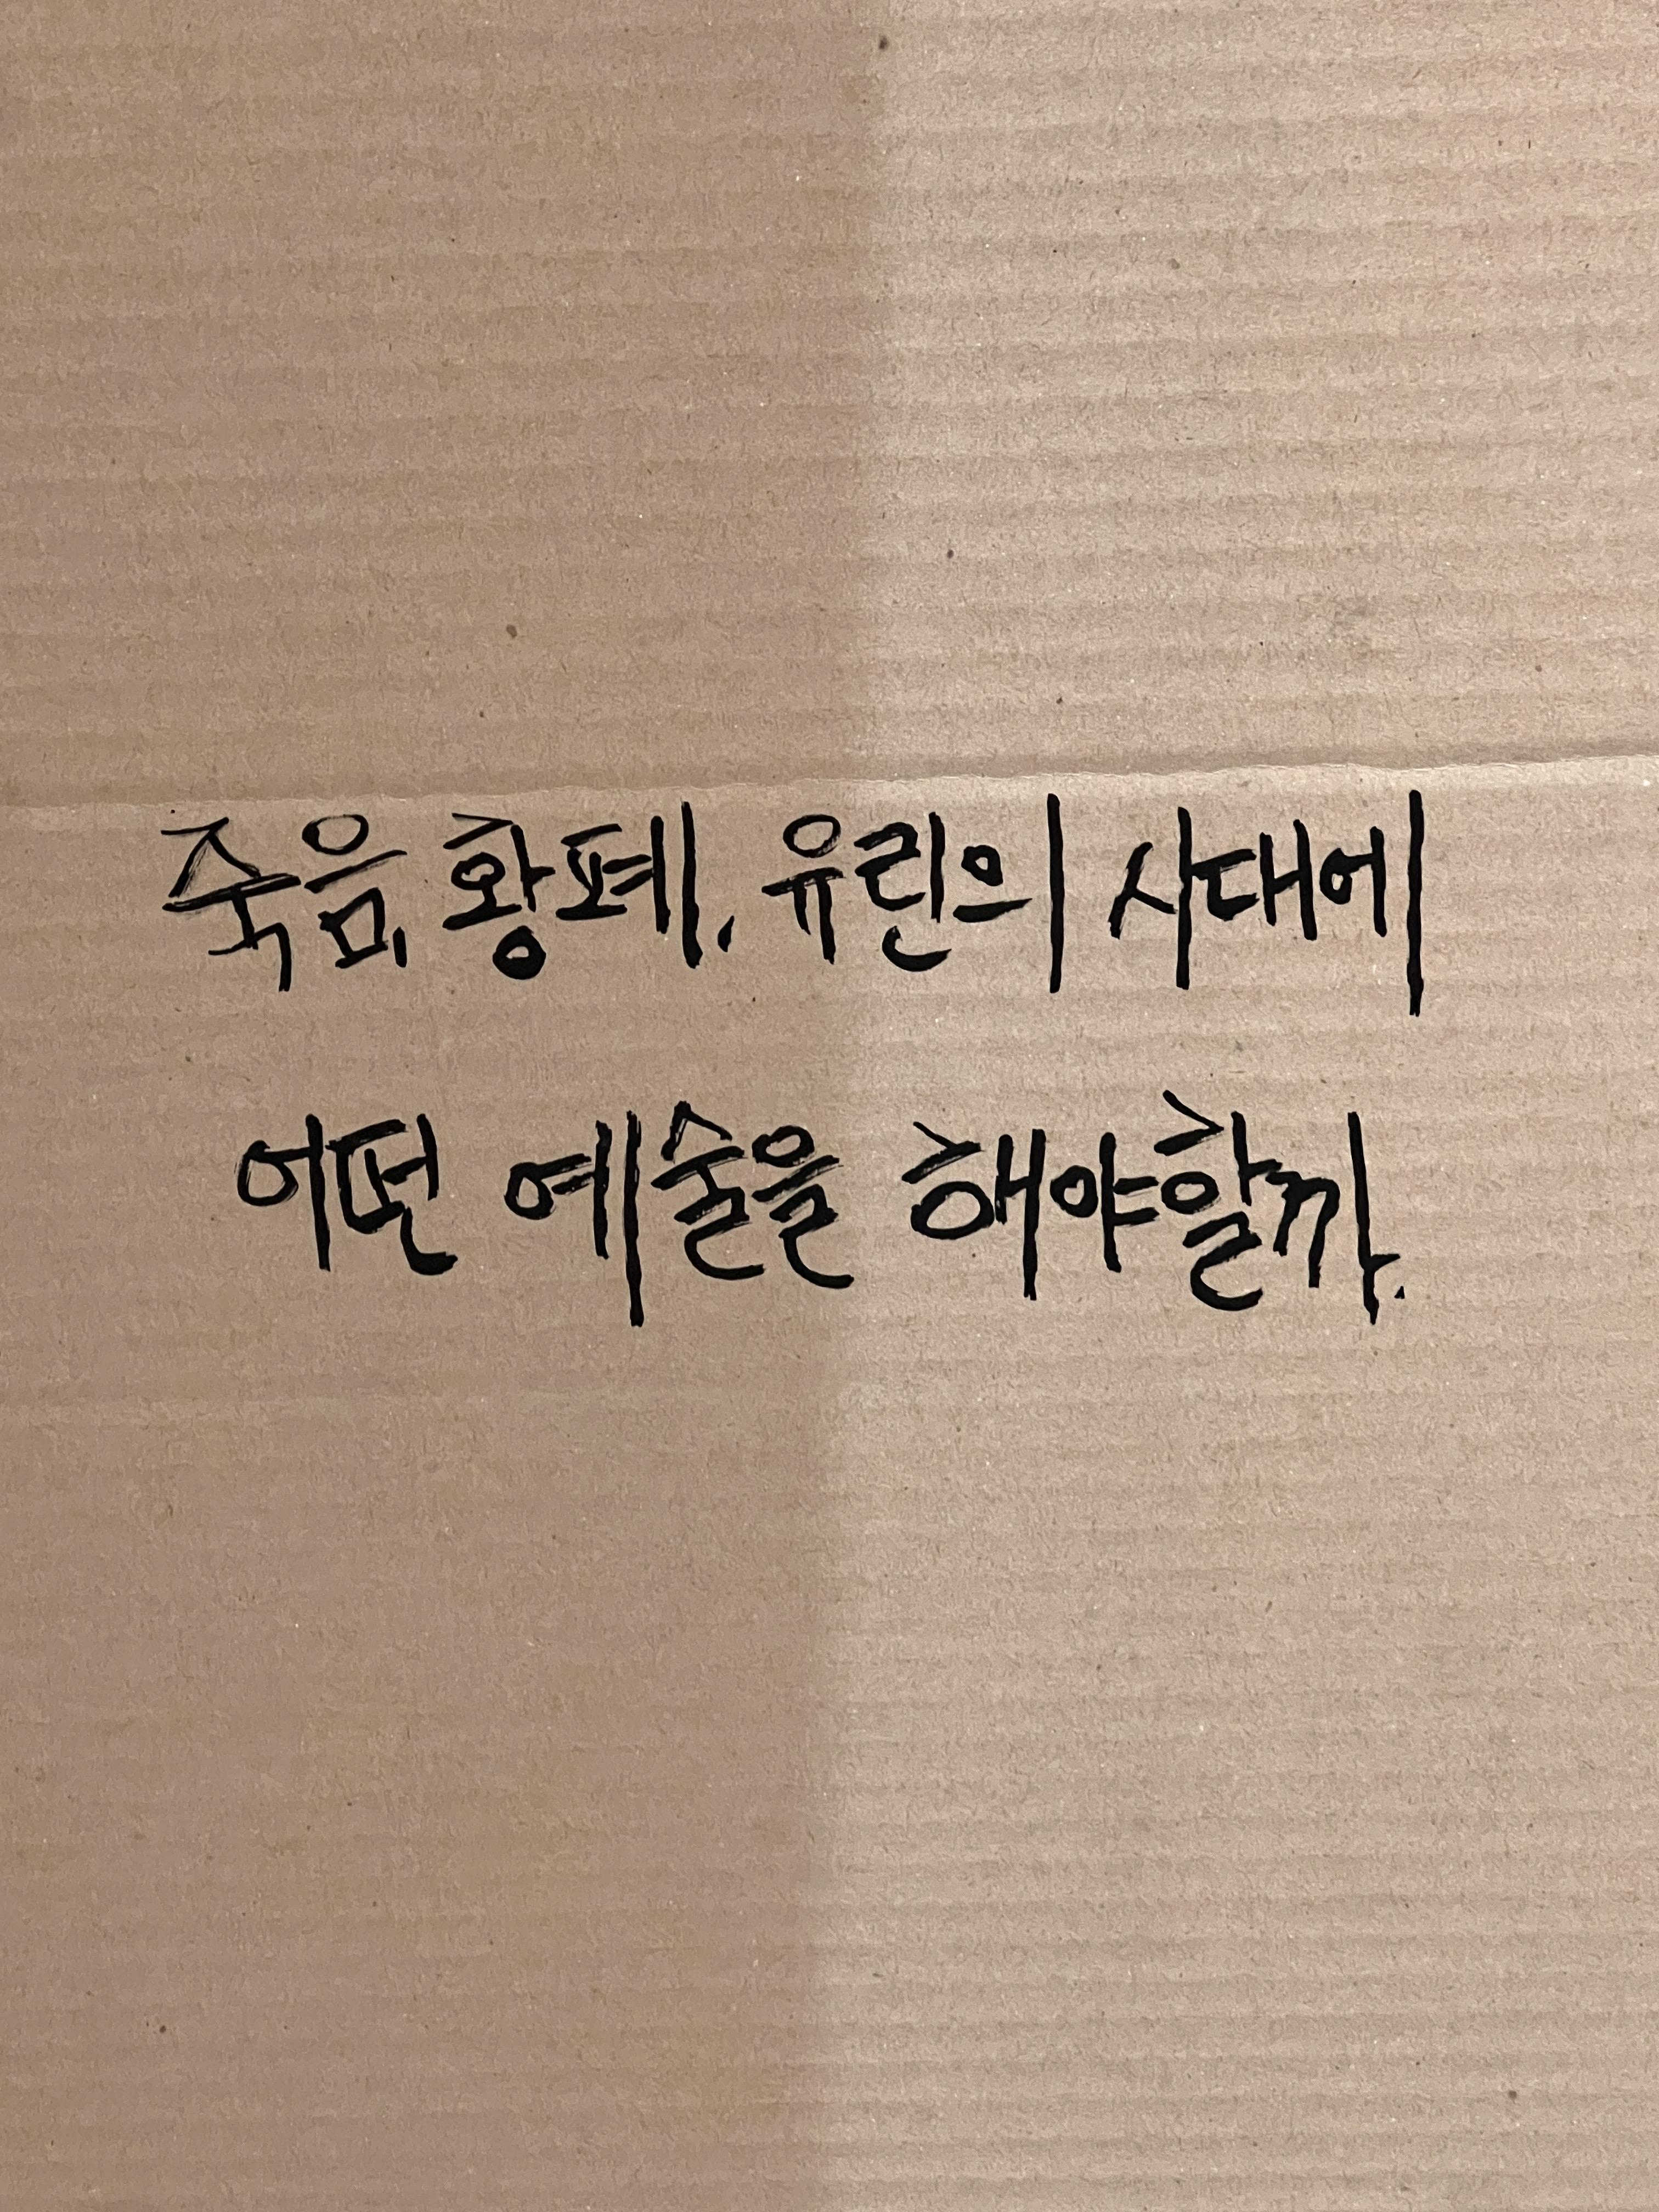 죽음, 황폐, 유린의 시대에
어떤 예술을 해야할까.